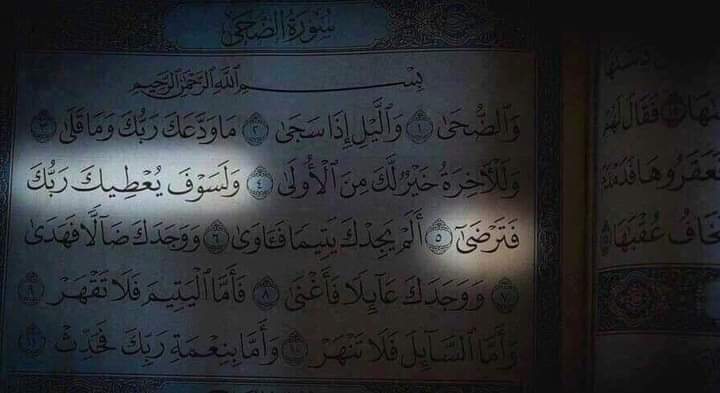 سُورَةُ الضُّحَىٰ
بِسْمِ ٱللَّهِ ٱلرَّحْمَٰنِ ٱلرَّحِيمِ
وَٱلضُّحَىٰ ١ وَٱلَّيْلِ إِذَا سَجَىٰ ٢ مَا وَدَّعَكَ رَبُّكَ وَمَا قَلَىٰ ٣
وَلَلْآخِرَةُ خَيْرٌ لَّكَ مِنَ ٱلْأُولَىٰ ٤ وَلَسَوْفَ يُعْطِيكَ رَبُّكَ
فَتَرْضَىٰٓ ٥ أَلَمْ يَجِدْكَ يَتِيمًا فَـَٔاوَىٰ ٦ وَوَجَدَكَ ضَآلًّا فَهَدَىٰ
٧ وَوَجَدَكَ عَآئِلًا فَأَغْنَىٰ ٨ فَأَمَّا ٱلْيَتِيمَ فَلَا تَقْهَرْ ٩
وَأَمَّا ٱلسَّآئِلَ فَلَا تَنْهَرْ ١٠ وَأَمَّا بِنِعْمَةِ رَبِّكَ فَحَدِّثْ ١١
فَقَالَ لَهُمْ
عُقْبَٰهَا